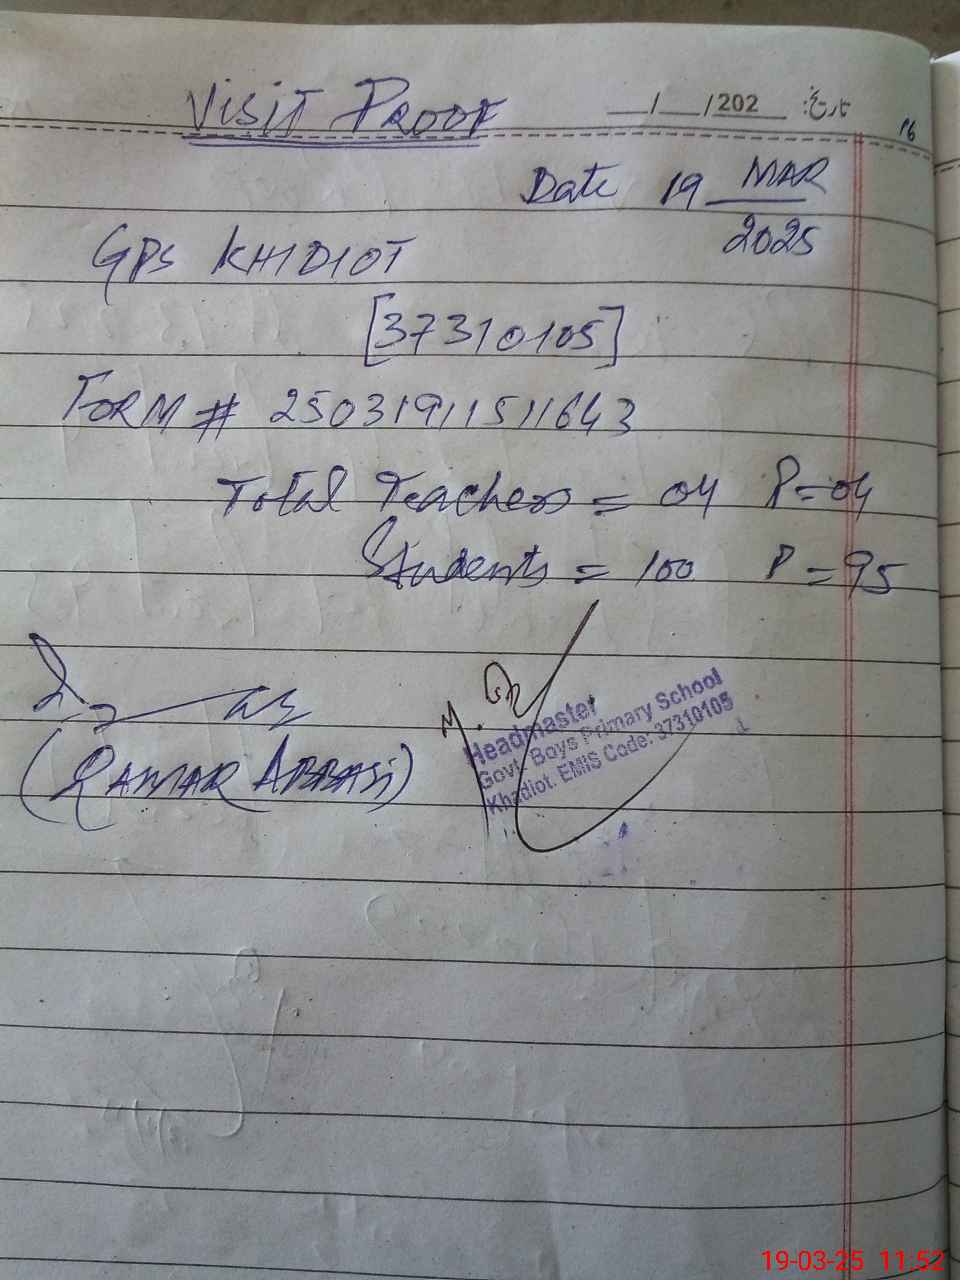 Visit Proof
__/__/202__ تاریخ:
16
Date 19 MAR
2025
GPS KHIDIOT
[37310105]
FORM # 25031911511643
Total Teachers = 04 P=04
Students = 100 P=95
(QAMAR ABBASI)
Headmaster
Govt. Boys Primary School
Khadiot. EMIS Code: 37310105
19-03-25 11:52